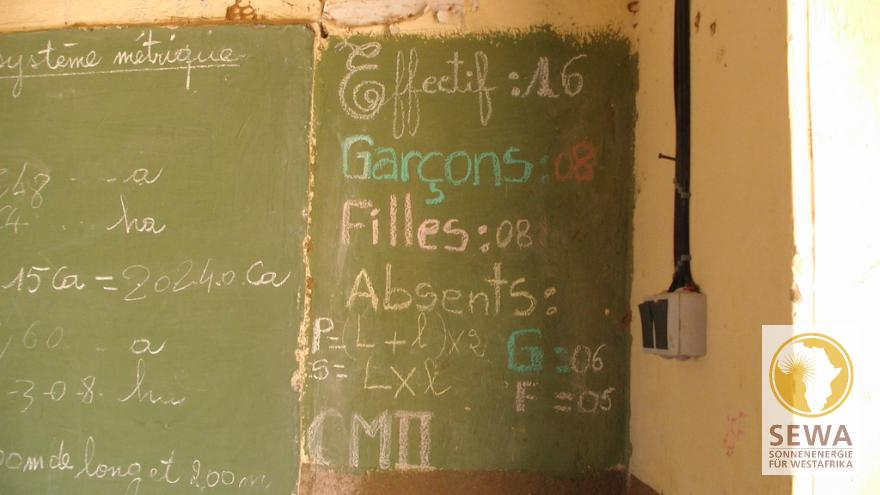 système métrique
a
ha
15Ca = 20240 Ca
60 a
308 ha
long et 200m
Effectif : 16
Garçons : 08
Filles : 08
Absents :
P=(L+l)x2
G = 06
S= Lxl
F = 05
CMII
SEWA
SONNENENERGIE
FÜR WESTAFRIKA